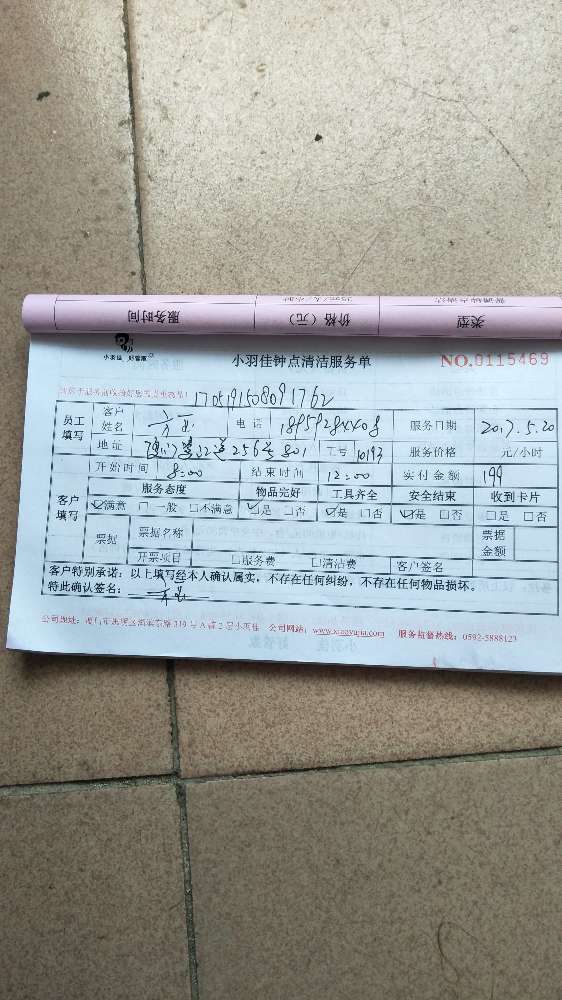 服务时间 价格（元） 类型
小羽佳 好管家
小羽佳钟点清洁服务单
NO.0115469
1705191508091762
员工填写 客户姓名 电话 服务日期 2017.5.20
地址 256号801 工号 10193 服务价格 元/小时
开始时间 8:00 结束时间 12:00 实付金额 199
客户填写 服务态度 物品完好 工具齐全 安全结束 收到卡片
☑满意 □一般 □不满意 ☑是 □否 ☑是 □否 ☑是 □否 □是 □否
票据 票据名称 票据金额
开票项目 □服务费 □清洁费 客户签名
客户特别承诺：以上填写经本人确认属实，不存在任何纠纷，不存在任何物品损坏。
特此确认签名：
公司网站：www.xiaoyujia.com 服务监督热线：0592-5888123